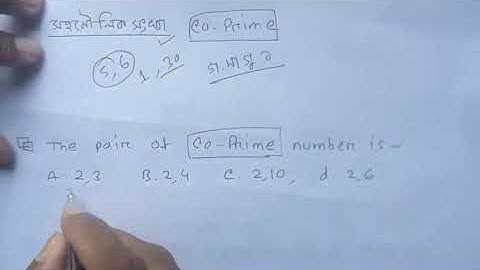 সহমৌলিক সংখ্যা Co-Prime
5,6 1,30 গ.সা.গু ১
The pair of Co-Prime number is-
A. 2,3 B. 2,4 C. 2,10, d. 2,6